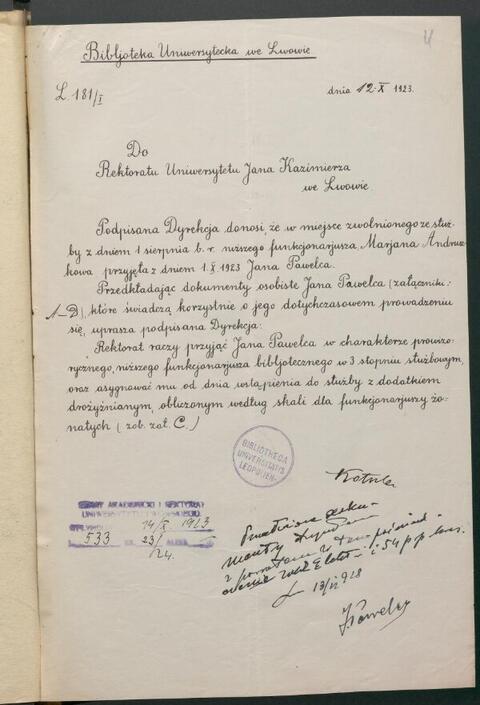 4
Bibljoteka Uniwersytecka we Lwowie
L. 181/I
dnia 12·X 1923.
Do
Rektoratu Uniwersytetu Jana Kazimierza
we Lwowie
Podpisana Dyrekcja donosi, że w miejsce zwolnionego ze służ-
by z dniem 1 sierpnia b. r. niższego funkcjonarjusza, Marjana Andrusz-
kowa przyjęła z dniem 1.X.1923 Jana Pawelca.
Przedkładając dokumenty osobiste Jana Pawelca (załączniki:
A-D), które świadczą korzystnie o jego dotychczasowem prowadzeniu
się, uprasza podpisana Dyrekcja:
Rektorat raczy przyjąć Jana Pawelca w charakterze prowizo-
rycznego, niższego funkcjonarjusza bibljotecznego w 3 stopniu służbowym,
oraz asygnować mu od dnia wstąpienia do służby z dodatkiem
drożyźnianym, obliczonym według skali dla funkcjonarjuszy żo-
natych (zob. zał. C.)
BIBLIOTHECA
UNIVERSITATIS
LEOPOLIEN.
SENAT AKADEMICKI I REKTORAT
14/X 1923
L. 533 23/24.
z powrotem
13/VI 928
J. Pawelec